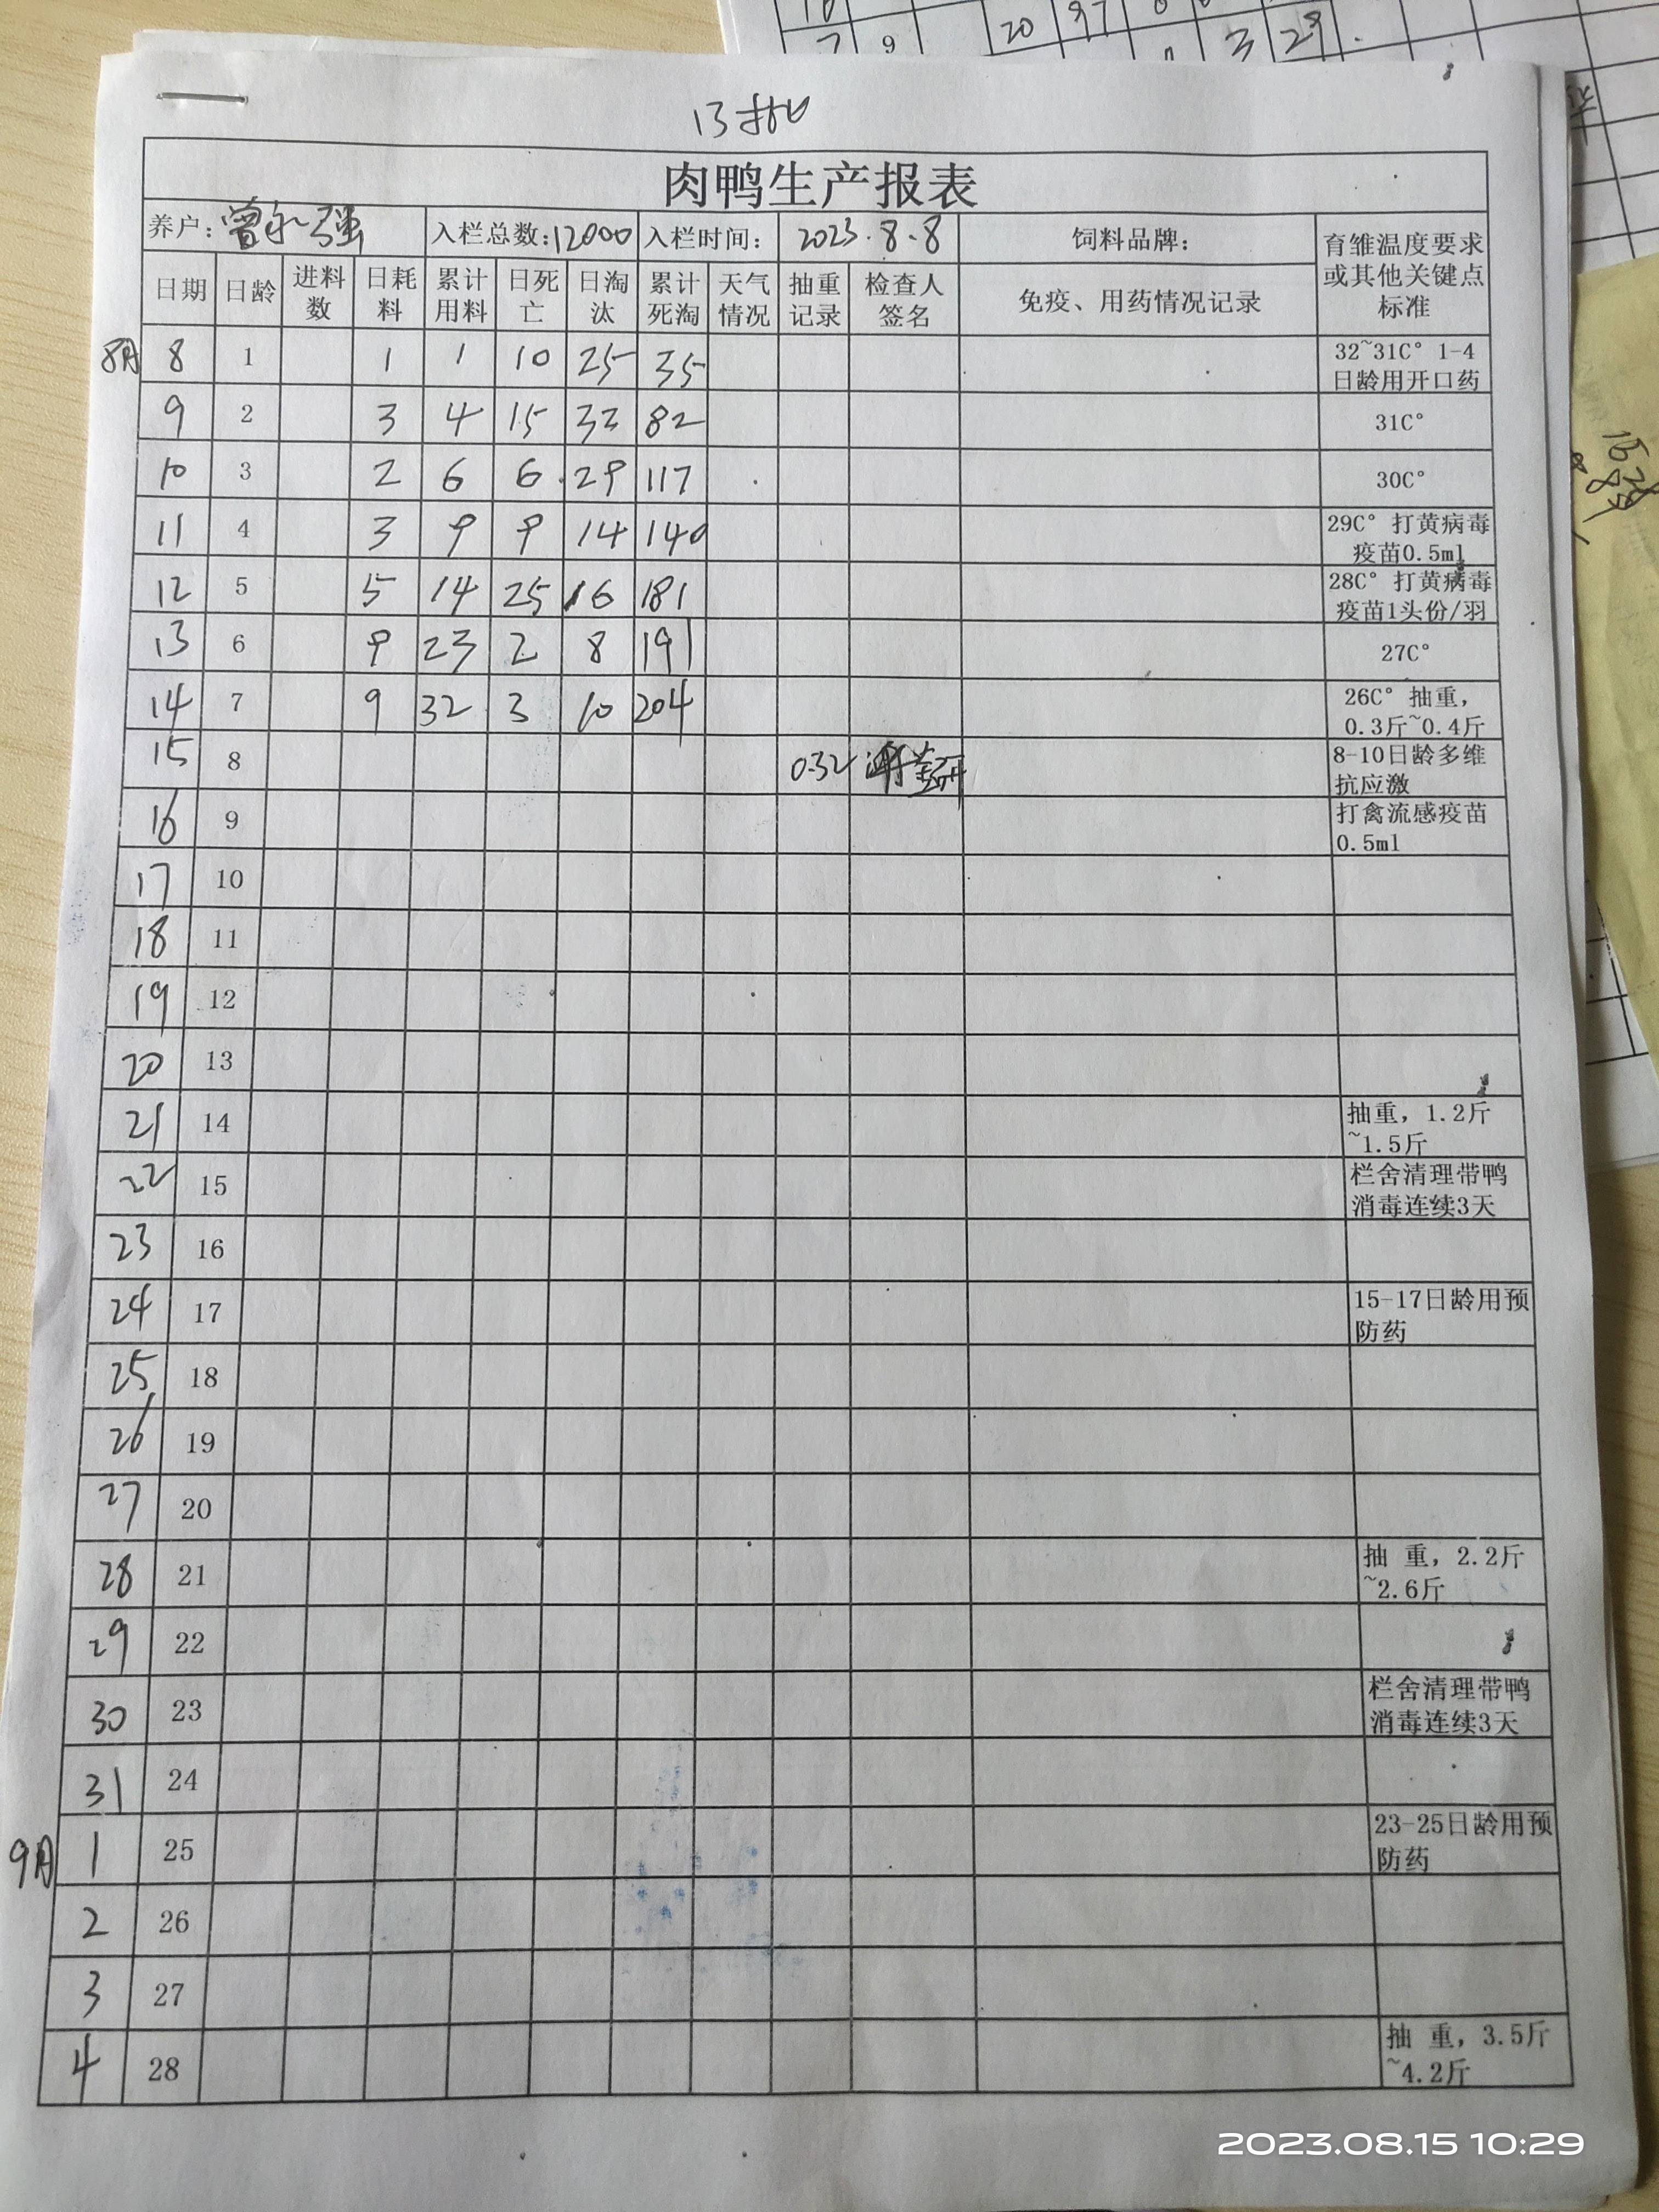 13批
肉鸭生产报表
养户: 曾永强 入栏总数:12000 入栏时间: 2023.8.8 饲料品牌: 育雏温度要求或其他关键点标准
日期 日龄 进料数 日耗料 累计用料 日死亡 日淘汰 累计死淘 天气情况 抽重记录 检查人签名 免疫、用药情况记录
8月 8 1 1 1 10 25 35 32~31C° 1-4日龄用开口药
9 2 3 4 15 32 82 31C°
10 3 2 6 6 29 117 30C°
11 4 3 9 9 14 140 29C° 打黄病毒疫苗0.5ml
12 5 5 14 25 16 181 28C° 打黄病毒疫苗1头份/羽
13 6 9 23 2 8 191 27C°
14 7 9 32 3 10 204 26C° 抽重，0.3斤~0.4斤
15 8 0.32 8-10日龄多维抗应激
16 9 打禽流感疫苗0.5ml
17 10
18 11
19 12
20 13
21 14 抽重，1.2斤~1.5斤
22 15 栏舍清理带鸭消毒连续3天
23 16
24 17 15-17日龄用预防药
25 18
26 19
27 20
28 21 抽 重，2.2斤~2.6斤
29 22
30 23 栏舍清理带鸭消毒连续3天
31 24
9月 1 25 23-25日龄用预防药
2 26
3 27
4 28 抽 重，3.5斤~4.2斤
2023.08.15 10:29